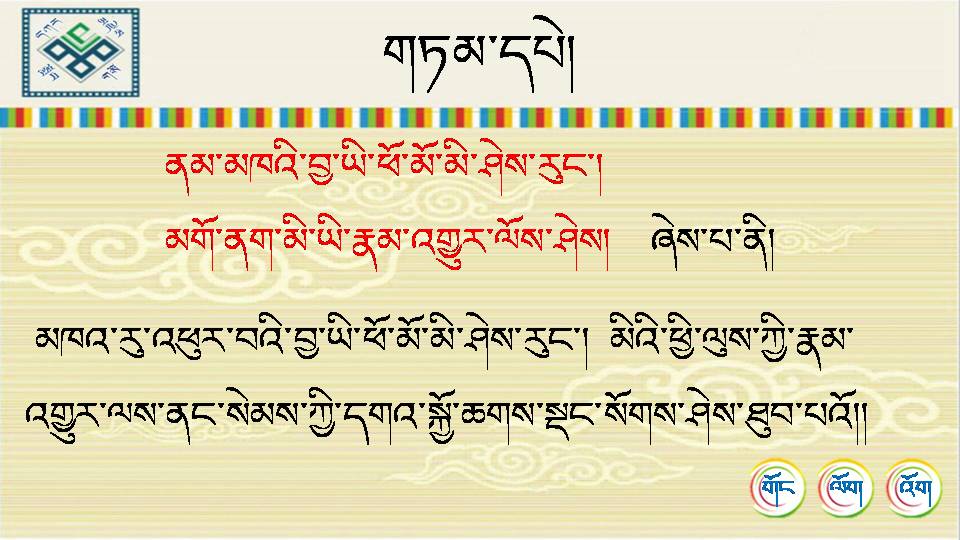 གཏམ་དཔེ།
ནམ་མཁའི་བྱ་ཡི་ཕོ་མོ་མི་ཤེས་རུང་།
མགོ་ནག་མི་ཡི་རྣམ་འགྱུར་ལོས་ཤེས། ཞེས་པ་ནི།
མཁའ་རུ་འཕུར་བའི་བྱ་ཡི་ཕོ་མོ་མི་ཤེས་རུང་། མིའི་ཕྱི་ལུས་ཀྱི་རྣམ་
འགྱུར་ལས་ནང་སེམས་ཀྱི་དགའ་སྐྱོ་ཆགས་སྡང་སོགས་ཤེས་ཐུབ་པའོ།།
གོང ལོག འོག